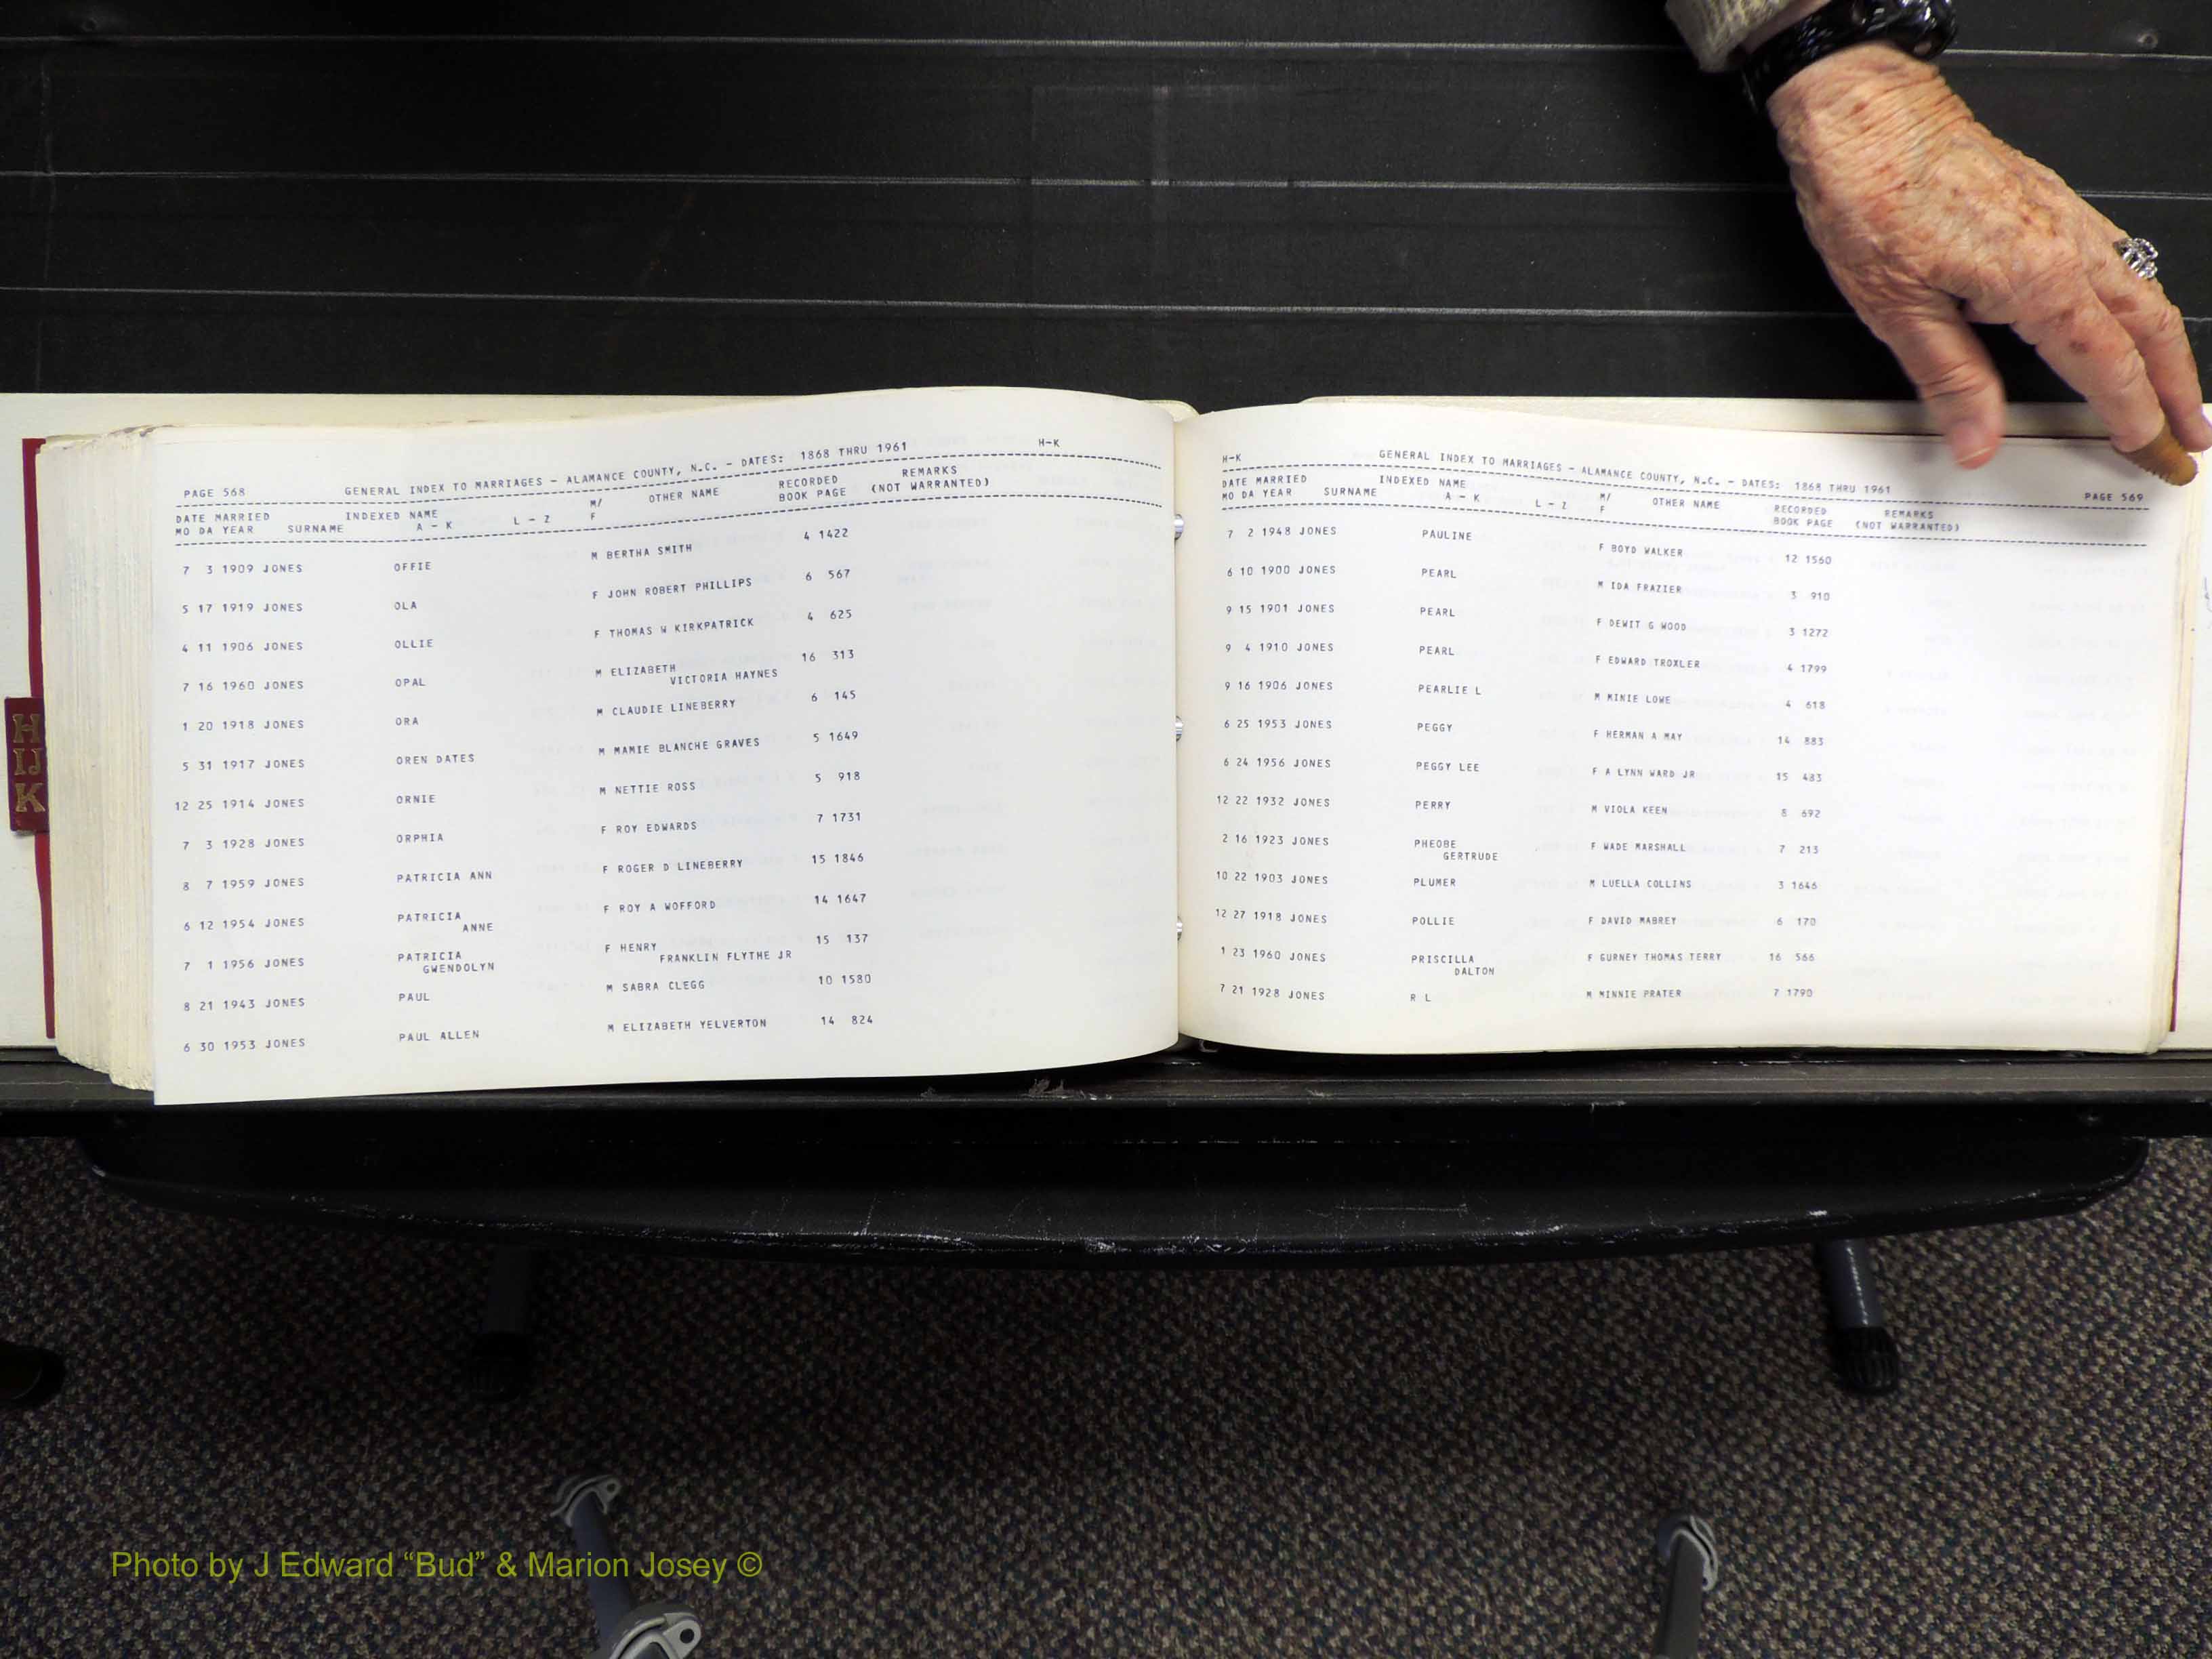 H
IJ
K
PAGE 568 GENERAL INDEX TO MARRIAGES - ALAMANCE COUNTY, N.C. - DATES: 1868 THRU 1961 H-K
DATE MARRIED INDEXED NAME M/ OTHER NAME RECORDED REMARKS
MO DA YEAR SURNAME A - K L - Z F BOOK PAGE (NOT WARRANTED)
7 3 1909 JONES OFFIE M BERTHA SMITH 4 1422
5 17 1919 JONES OLA F JOHN ROBERT PHILLIPS 6 567
4 11 1906 JONES OLLIE F THOMAS W KIRKPATRICK 4 625
7 16 1960 JONES OPAL M ELIZABETH 16 313
VICTORIA HAYNES
1 20 1918 JONES ORA M CLAUDIE LINEBERRY 6 145
5 31 1917 JONES OREN DATES M MAMIE BLANCHE GRAVES 5 1649
12 25 1914 JONES ORNIE M NETTIE ROSS 5 918
7 3 1928 JONES ORPHIA F ROY EDWARDS 7 1731
8 7 1959 JONES PATRICIA ANN F ROGER D LINEBERRY 15 1846
6 12 1954 JONES PATRICIA F ROY A WOFFORD 14 1647
ANNE
7 1 1956 JONES PATRICIA F HENRY 15 137
GWENDOLYN FRANKLIN FLYTHE JR
8 21 1943 JONES PAUL M SABRA CLEGG 10 1580
6 30 1953 JONES PAUL ALLEN M ELIZABETH YELVERTON 14 824
H-K GENERAL INDEX TO MARRIAGES - ALAMANCE COUNTY, N.C. - DATES: 1868 THRU 1961 PAGE 569
DATE MARRIED INDEXED NAME M/ OTHER NAME RECORDED REMARKS
MO DA YEAR SURNAME A - K L - Z F BOOK PAGE (NOT WARRANTED)
7 2 1948 JONES PAULINE F BOYD WALKER 12 1560
6 10 1900 JONES PEARL M IDA FRAZIER 3 910
9 15 1901 JONES PEARL F DEWIT G WOOD 3 1272
9 4 1910 JONES PEARL F EDWARD TROXLER 4 1799
9 16 1906 JONES PEARLIE L M MINIE LOWE 4 618
6 25 1953 JONES PEGGY F HERMAN A MAY 14 883
6 24 1956 JONES PEGGY LEE F A LYNN WARD JR 15 483
12 22 1932 JONES PERRY M VIOLA KEEN 8 692
2 16 1923 JONES PHEOBE F WADE MARSHALL 7 213
GERTRUDE
10 22 1903 JONES PLUMER M LUELLA COLLINS 3 1646
12 27 1918 JONES POLLIE F DAVID MABREY 6 170
1 23 1960 JONES PRISCILLA F GURNEY THOMAS TERRY 16 566
DALTON
7 21 1928 JONES R L M MINNIE PRATER 7 1790
Photo by J Edward “Bud” & Marion Josey ©